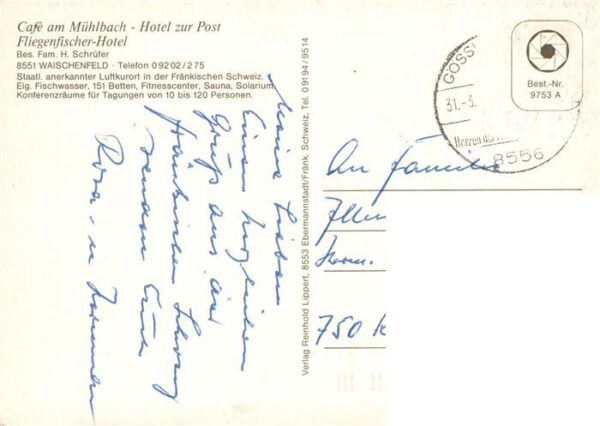 Café am Mühlbach - Hotel zur Post
Fliegenfischer-Hotel
Bes. Fam. H. Schrüfer
8551 WAISCHENFELD · Telefon 09202/275
Staatl. anerkannter Luftkurort in der Fränkischen Schweiz.
Eig. Fischwasser, 151 Betten, Fitnesscenter, Sauna, Solarium
Konferenzräume für Tagungen von 10 bis 120 Personen.
Meine Lieben
Einen herzlichen
Gruß aus der
Fränkischen Schweiz
senden Euch
Rosa u.
Verlag Reinhold Lippert, 8553 Ebermannstadt/Fränk. Schweiz, Tel. 09194/9514
GOSS
31.-3.
8556
Best.-Nr.
9753 A
An Familie
750 K